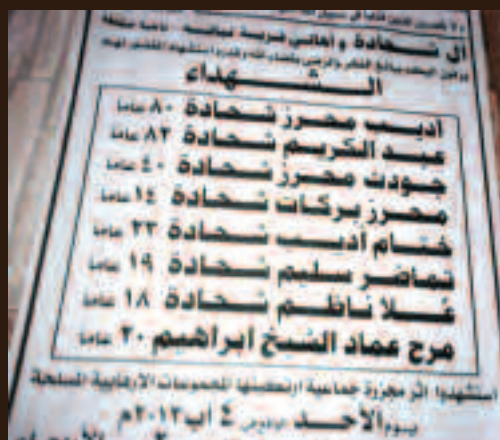 آل شحادة و أهالي قرية
الشهداء
أديب محرز شحادة ٨٠ عاما
عبد الكريم شحادة ٨٢ عاما
جودت محرز شحادة ٤٠ عاما
محرز بركات شحادة ١٤ عاما
ختام أديب شحادة ٣٣ عاما
تماضر سليم شحادة ١٩ عاما
علا ناظم شحادة ١٨ عاما
مرح عماد الشيخ ابراهيم ٢٠ عاما
استشهدوا اثر مجزرة جماعية ارتكبتها المجموعات الارهابية المسلحة
يوم الأحد ٤ اب ٢٠١٣م